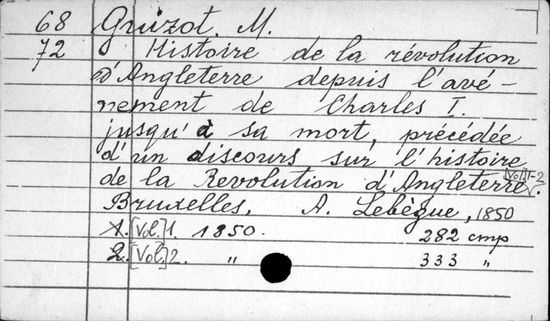 68 Gruizot. M.
72 Histoire de la révolution
d'Angleterre depuis l'avé-
nement de Charles I.
jusqu'à sa mort, précédée
d'un discours sur l'histoire
de la Revolution d'Angleterre. [Vol. 1-2
Bruxelles, A. Lebègue, 1850
1. [Vol.] 1 1850. 282 cmp
2. [Vol.] 2. " 333 "